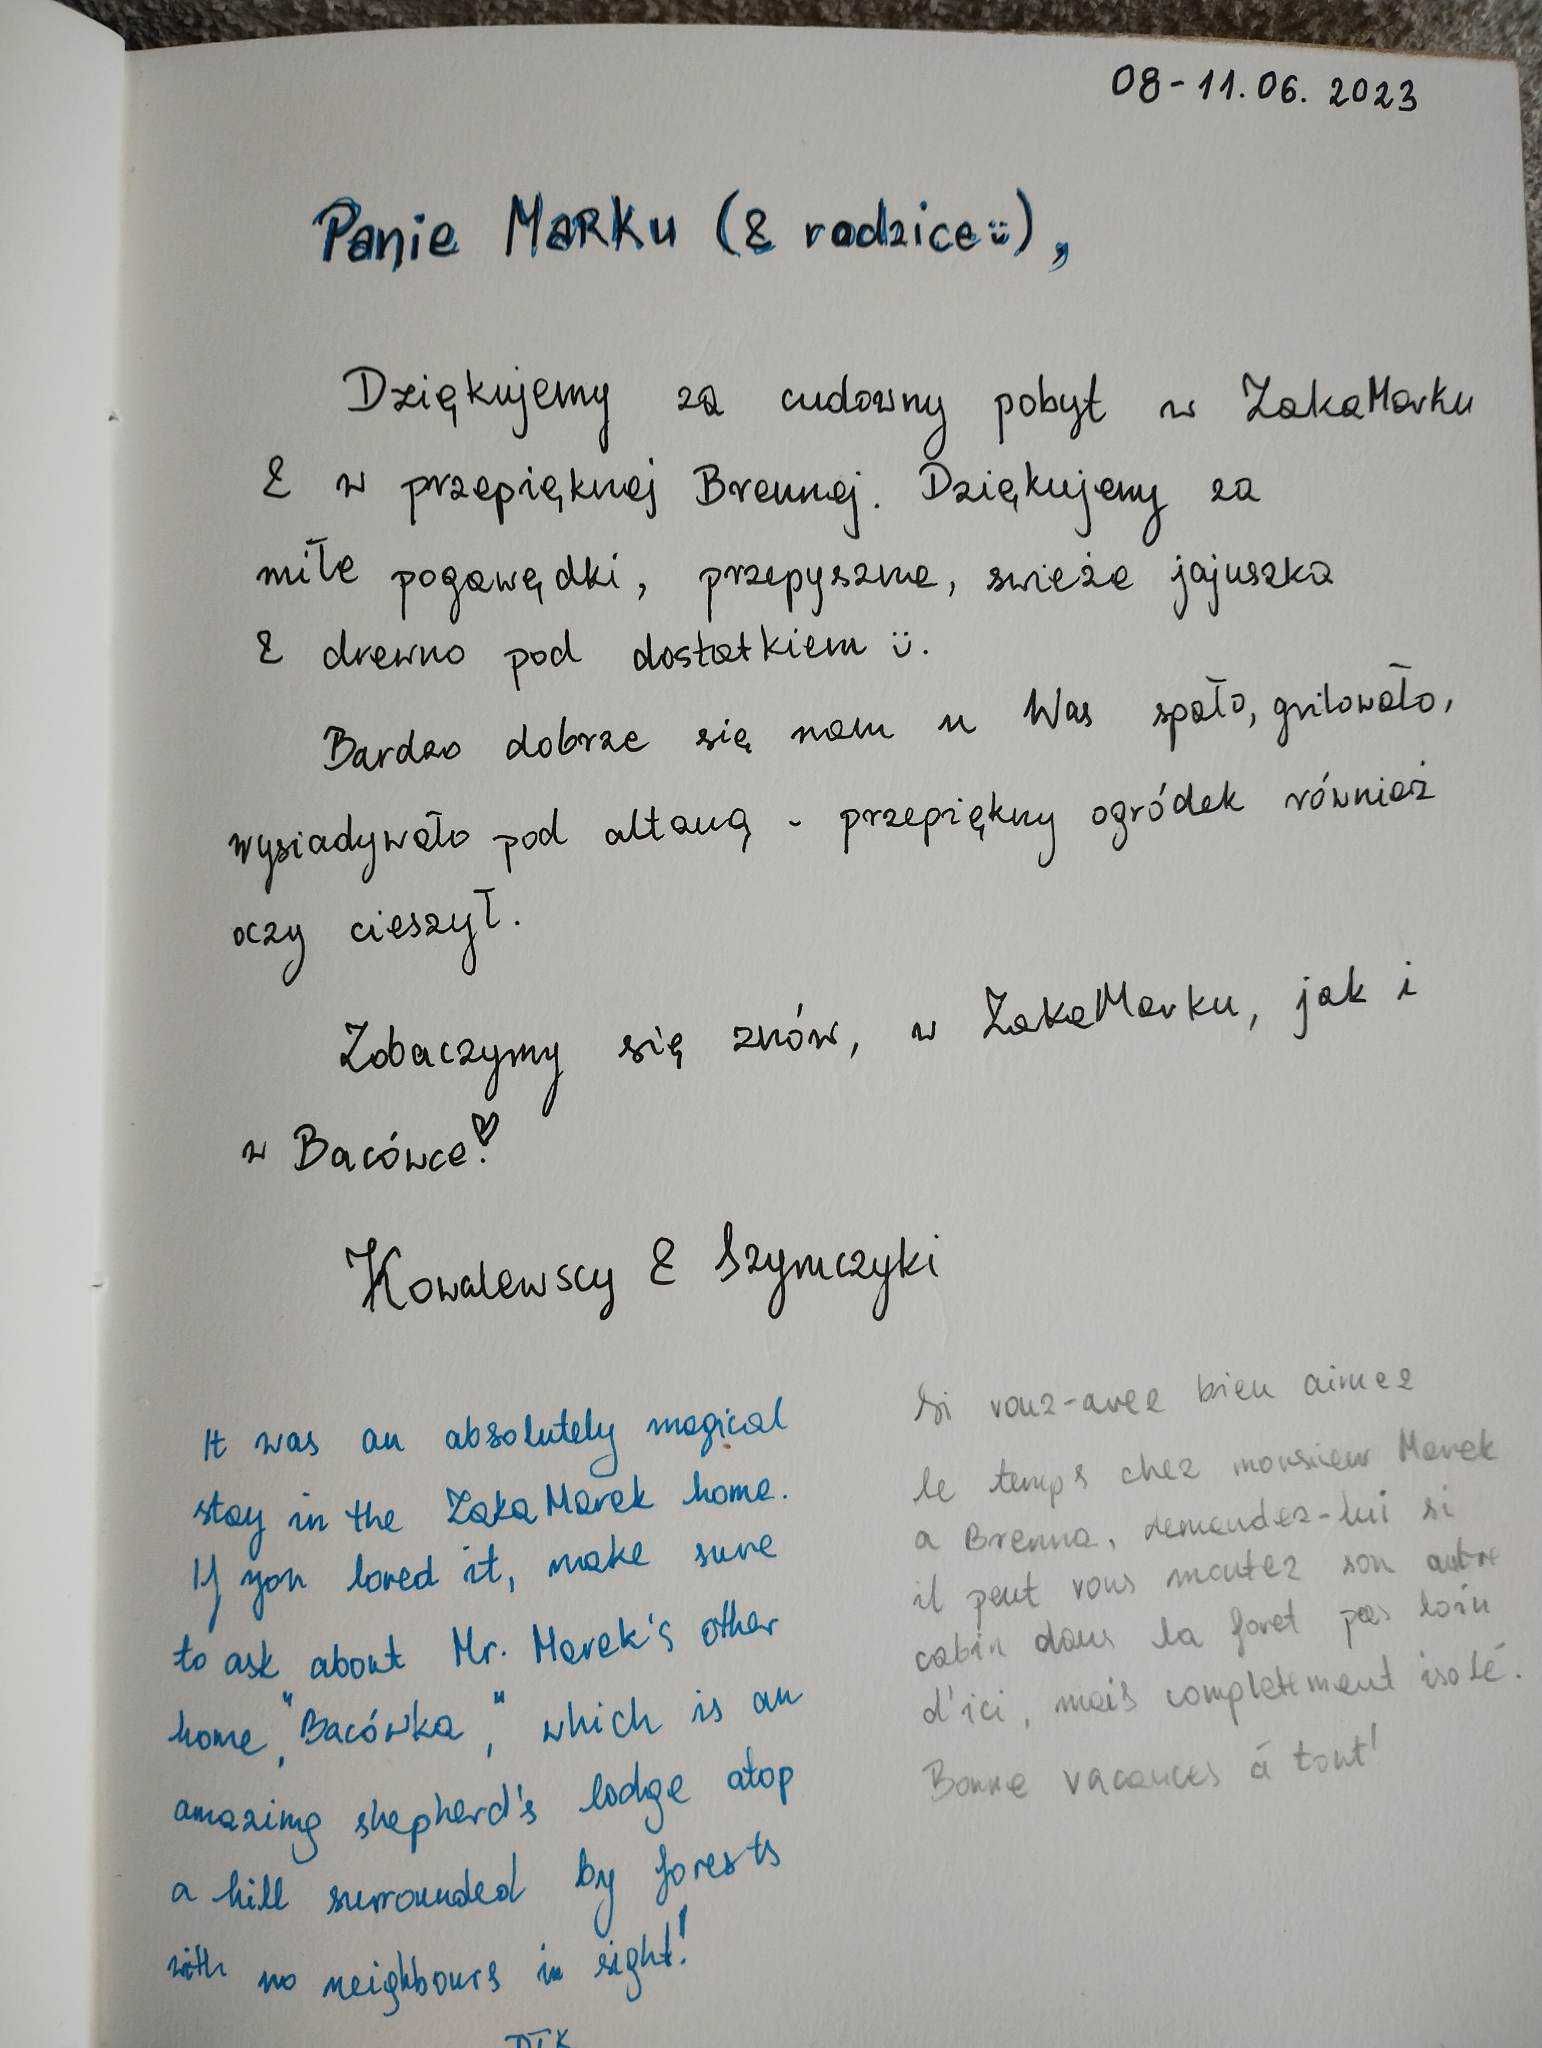 08-11.06.2023
Panie Marku (& rodzice ü),
Dziękujemy za cudowny pobyt w ZakaMarku
& w przepięknej Brennej. Dziękujemy za
miłe pogawędki, przepyszne, swieże jajuszka
& drewno pod dostatkiem ü.
Bardzo dobrze się nam u Was spało, grilowało,
wysiadywało pod altaną - przepiękny ogródek również
oczy cieszył.
Zobaczymy się znów, w ZakaMarku, jak i
w Bacówce!
Kowalewscy & Szymczyki
It was an absolutely magical
stay in the ZakaMarek home.
If you loved it, make sure
to ask about Mr. Marek's other
home, "Bacówka", which is an
amazing shepherd's lodge atop
a hill surrounded by forests
with no neighbours in sight!
DTK
Si vouz-avez bien aimez
le temps chez monsieur Marek
a Brenna, demandez-lui si
il peut vous montez son autre
cabin dans la foret pas loin
d'ici, mais completement isolé.
Bonne vacances á tout!